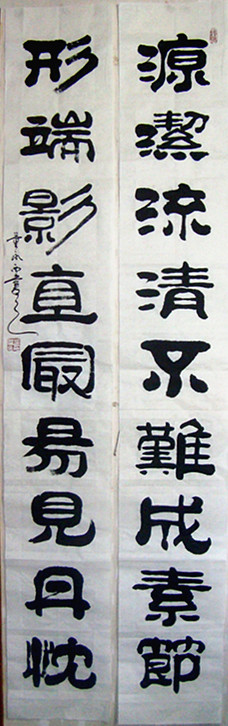 源潔流清不難成素節
形端影直冣易見丹忱